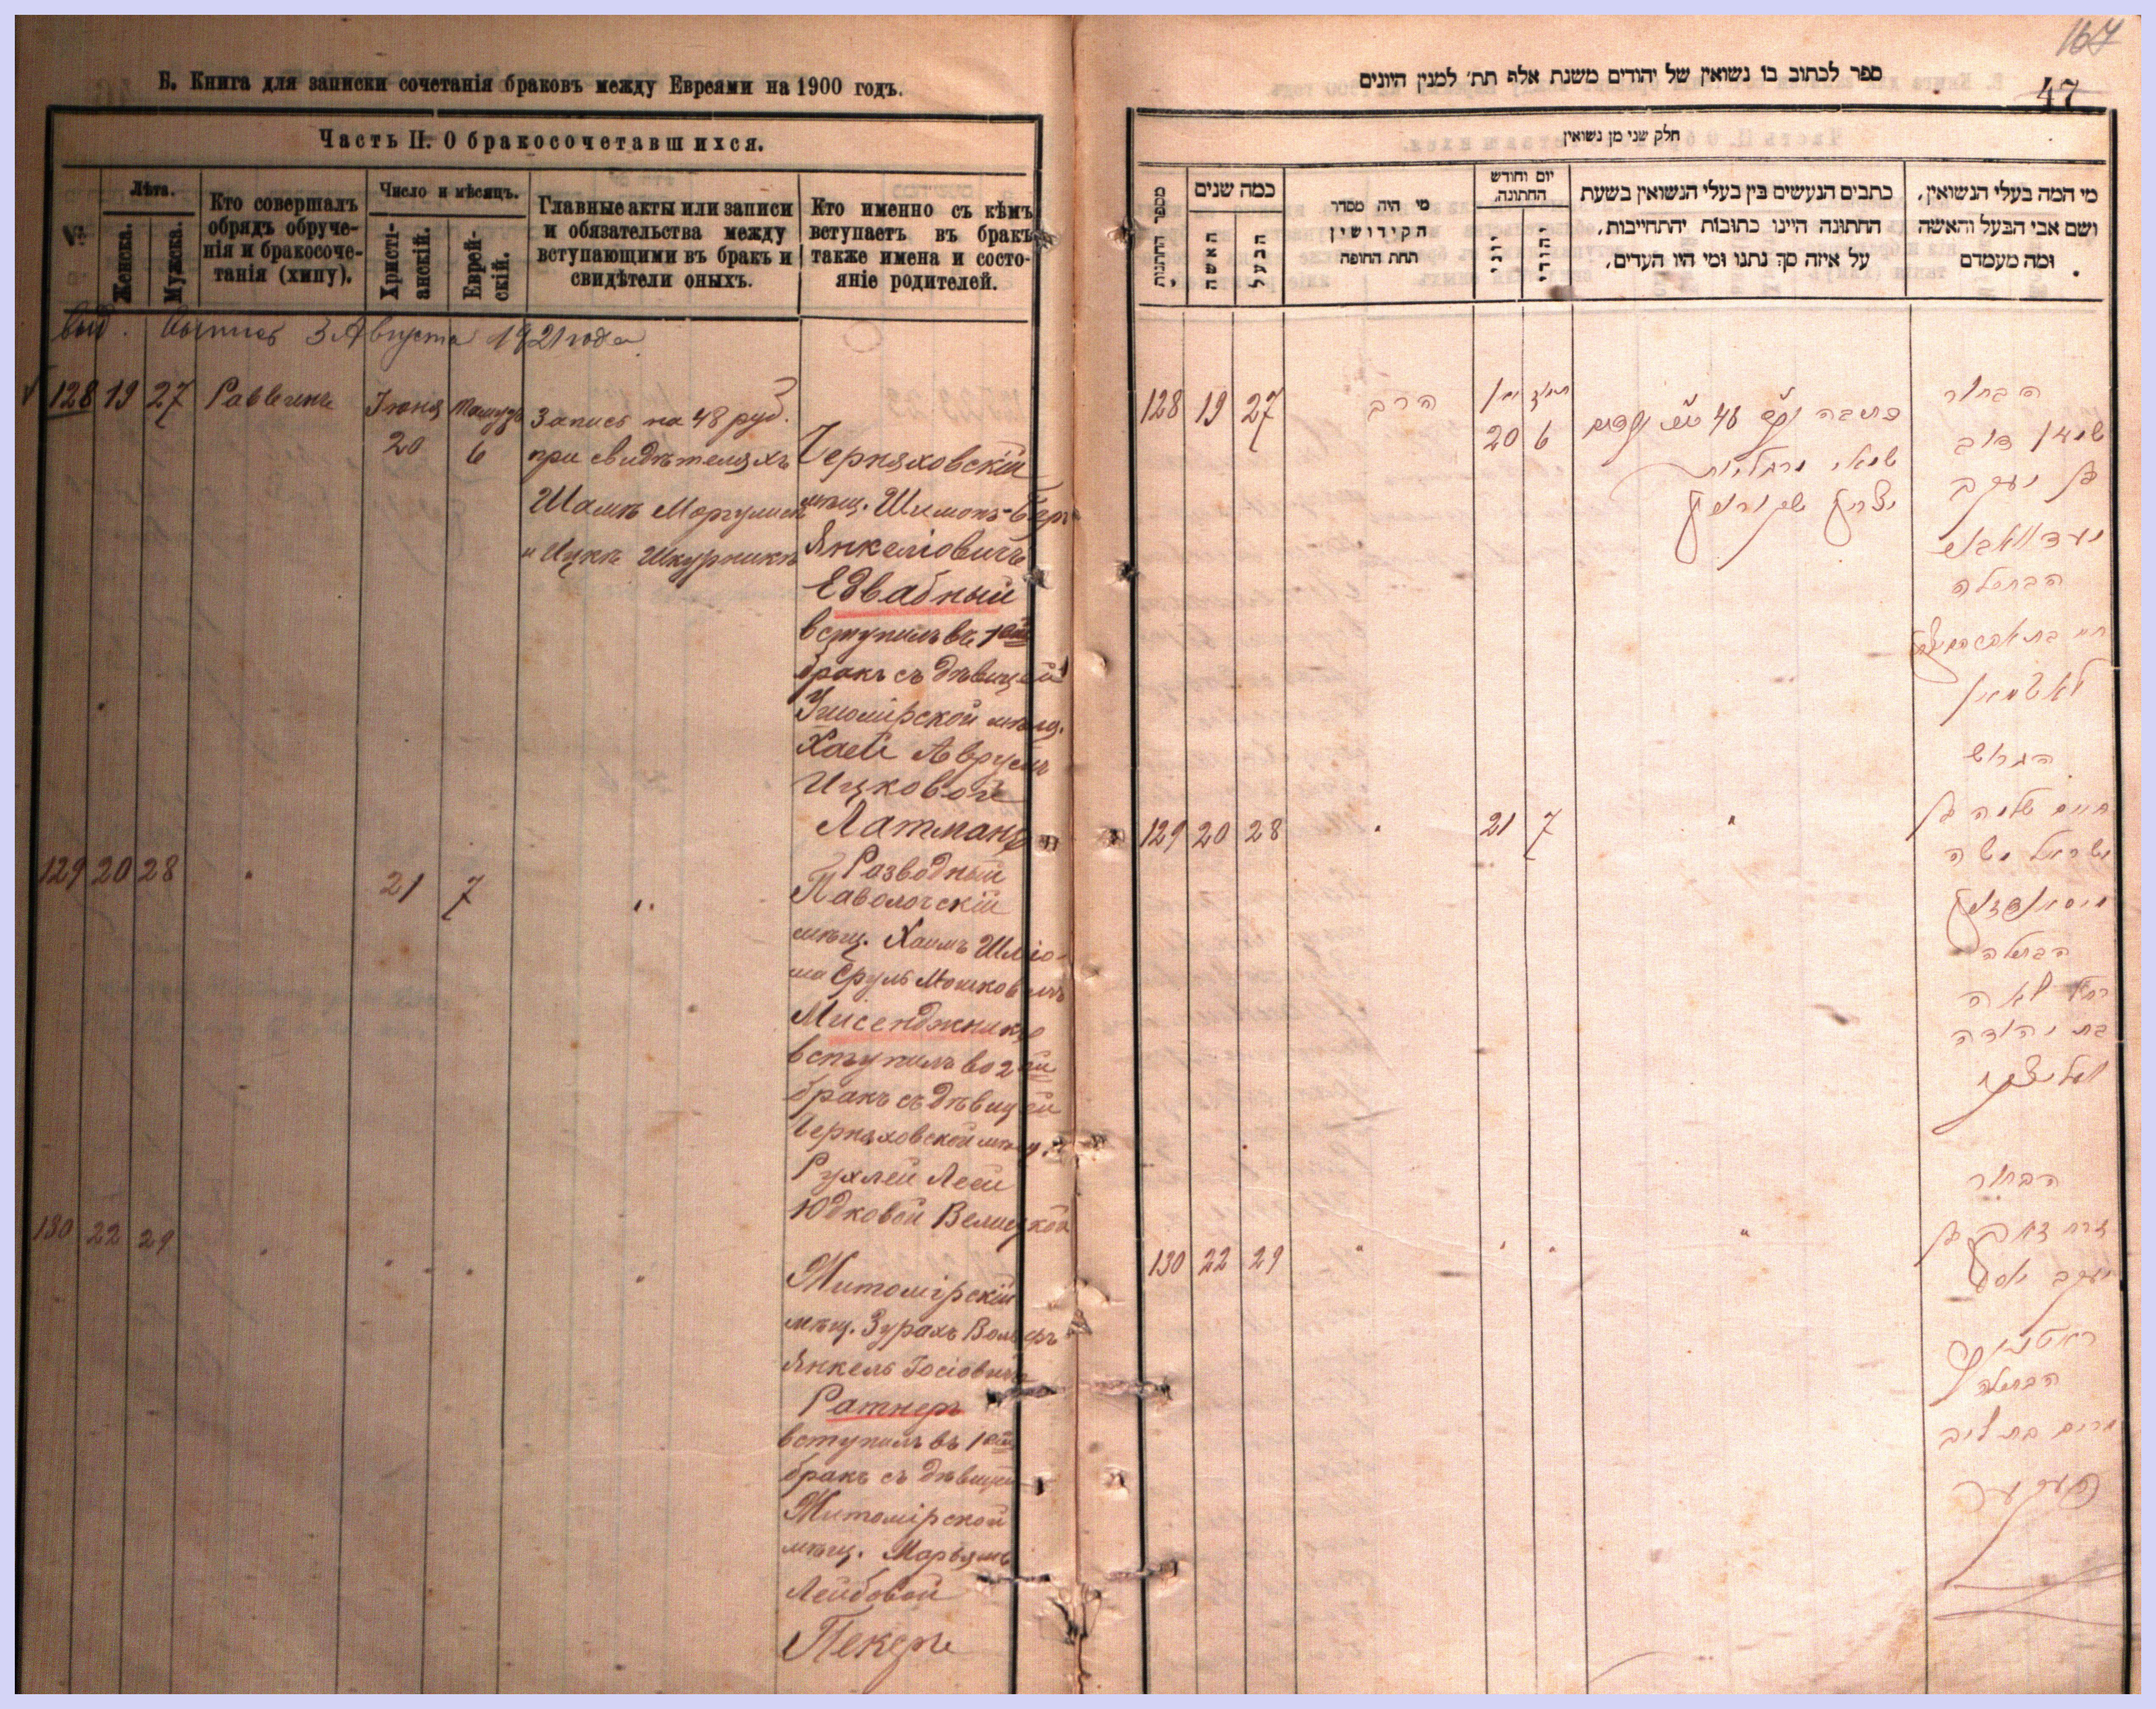 Б. Книга для записки сочетанія браковъ между Евреями на 1900 годъ.
Часть II. О бракосочетавшихся.
№
Лѣта.
Женска.
Мужска.
Кто совершалъ
обрядъ обруче-
нія и бракосоче-
танія (хипу).
Число и мѣсяцъ.
Христі-
анскій.
Еврей-
скій.
Главные акты или записи
и обязательства между
вступающими въ бракъ и
свидѣтели оныхъ.
Кто именно съ кѣмъ
вступаетъ въ бракъ
также имена и состо-
яніе родителей.
выпись 3 Августа 1921 года
128 19 27 Раввинъ Іюня 20 Тамузъ 6
Запись на 48 руб.
при свидѣтеляхъ
Шамъ Моргулисъ
и Ицкъ Шкурникъ
Черняховскій
мѣщ. Шимонъ-Беръ
Янкеліовичъ
Едвабный
вступилъ въ 1ый
бракъ съ дѣвицей
мѣщ.
Хаей Аврумъ
Ицковой
Латманъ
129 20 28 " 21 7 "
Разводный
Паволочскій
мѣщ. Хаимъ Шліо-
ма Сруль Мошковичъ
Мисенджникъ
вступилъ во 2ой
бракъ съ дѣвицей
Черняховской мѣщ.
Рухлей Леей
Юдковой Велицкой
130 22 29 " " " "
Житомірскій
мѣщ. Зурахъ Вольфъ
Янкель Іосіовичъ
Ратнеръ
вступилъ въ 1ый
бракъ съ дѣвицей
Житомірской
мѣщ. Марьямъ
Лейбовой
Пекеръ
167
47
ספר לכתוב בו נשואין של יהודים משנת אלף תת׳ למנין היונים
חלק שני מן נשואין
מספר החתונות
כמה שנים
האשה
הבעל
מי היה מסדר
הקידושין
תחת החופה
יום וחודש
החתונה.
יוני
יהודי
כתבים הנעשים בין בעלי הנשואין בשעת
החתונה היינו כתובות יהתחייבות,
על איזה סך נתנו ומי היו העדים,
מי המה בעלי הנשואין,
ושם אבי הבעל והאשה
ומה מעמדם
128 19 27 הרב 20 6
הבחור
שמעון דוב
בן יעקב
הבתולה
לאטמאן
129 20 28 " 21 7 "
הגרוש
חיים שלמה בן
ישראל משה
הבתולה
רחל לאה
בת יהודה
130 22 29 " " " "
הבחור
זרח זאב בן
יעקב יוסף
ראטנער
הבתולה
מרים בת ליב
פעקער